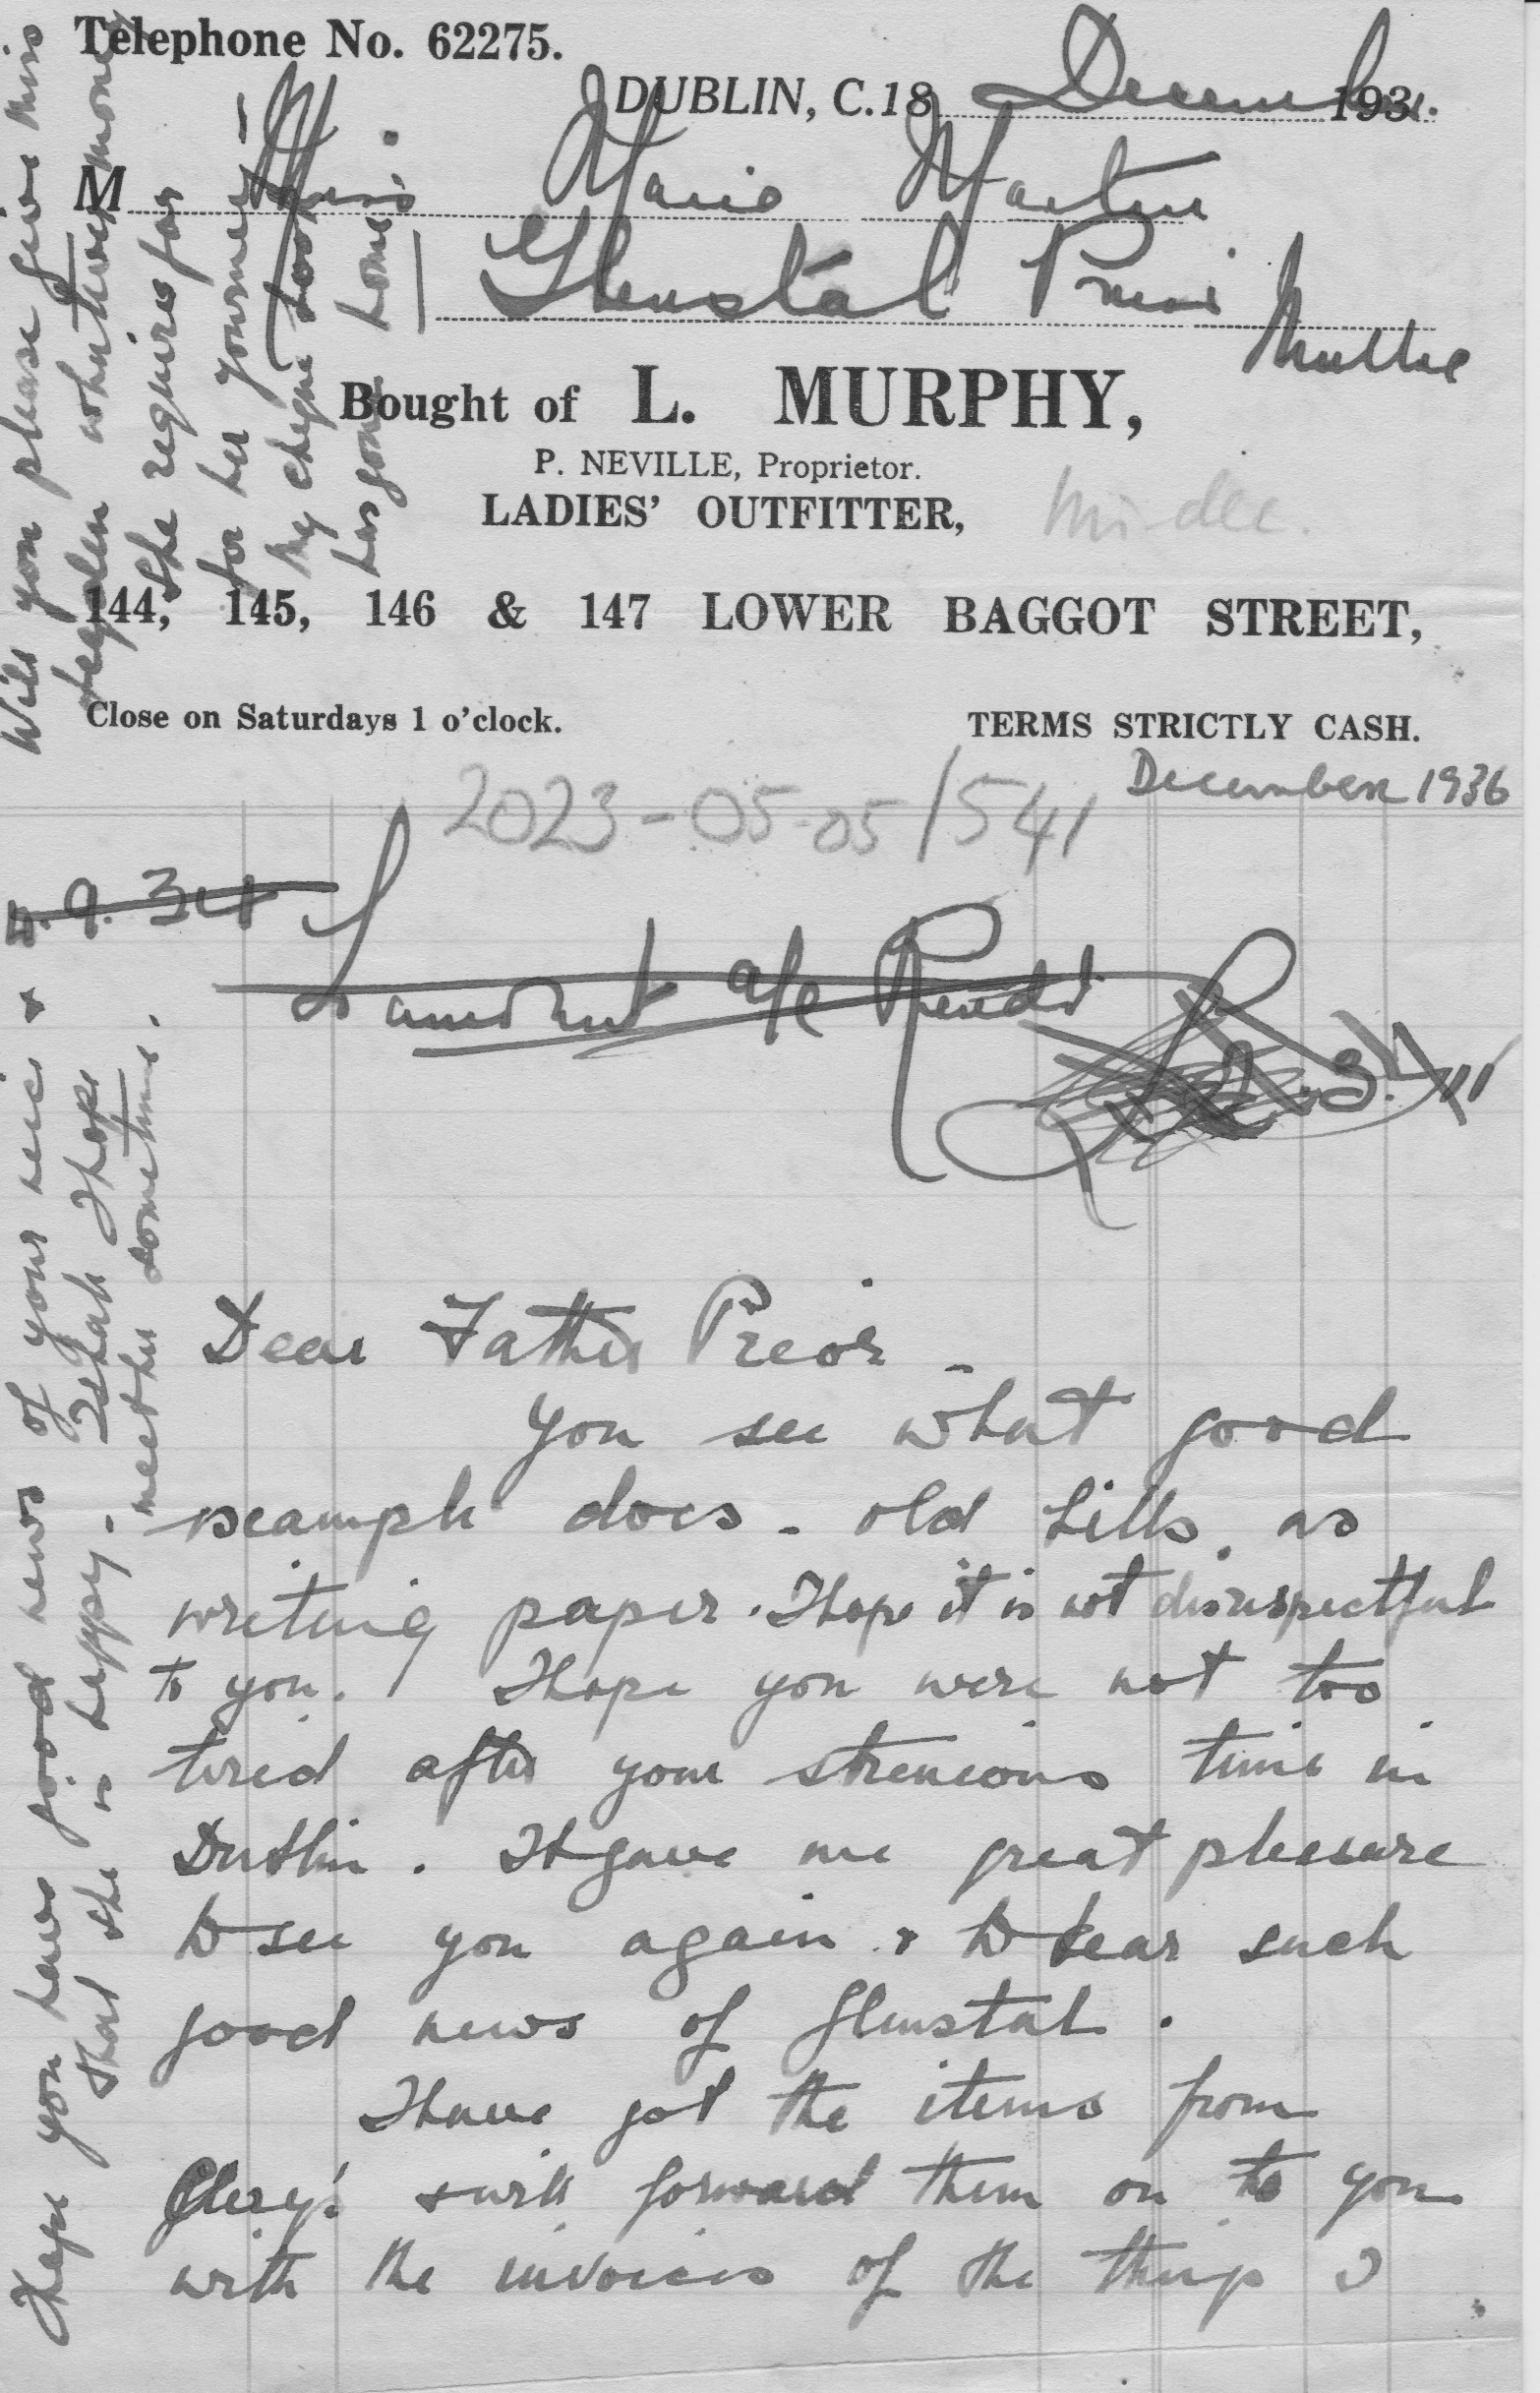 Telephone No. 62275.
DUBLIN, C.18 December 193
M Miss Marie Martin
Glenstal Priory
Murroe
Bought of L. MURPHY,
P. NEVILLE, Proprietor.
LADIES' OUTFITTER,
144, 145, 146 & 147 LOWER BAGGOT STREET,
Close on Saturdays 1 o'clock.
TERMS STRICTLY CASH.
December 1936
2023-05-05/541
9. 34
a/c Rendd
Dear Father Preor -
you see what good
example does - old bills as
writing paper. I hope it is not disrespectful
to you. I hope you were not too
tired after your strenuous time in
Dublin. It gave me great pleasure
to see you again & to hear such
good news of Glenstal.
I have got the items from
Clerys & will forward them on to you
with the invoices of the things I
Hope you have good news of your neice &
that she is happy. I shall I hope
meet her sometime.
Will you please give Miss
whatever money
she requires for
for her journey -
my cheque book
has gone home.